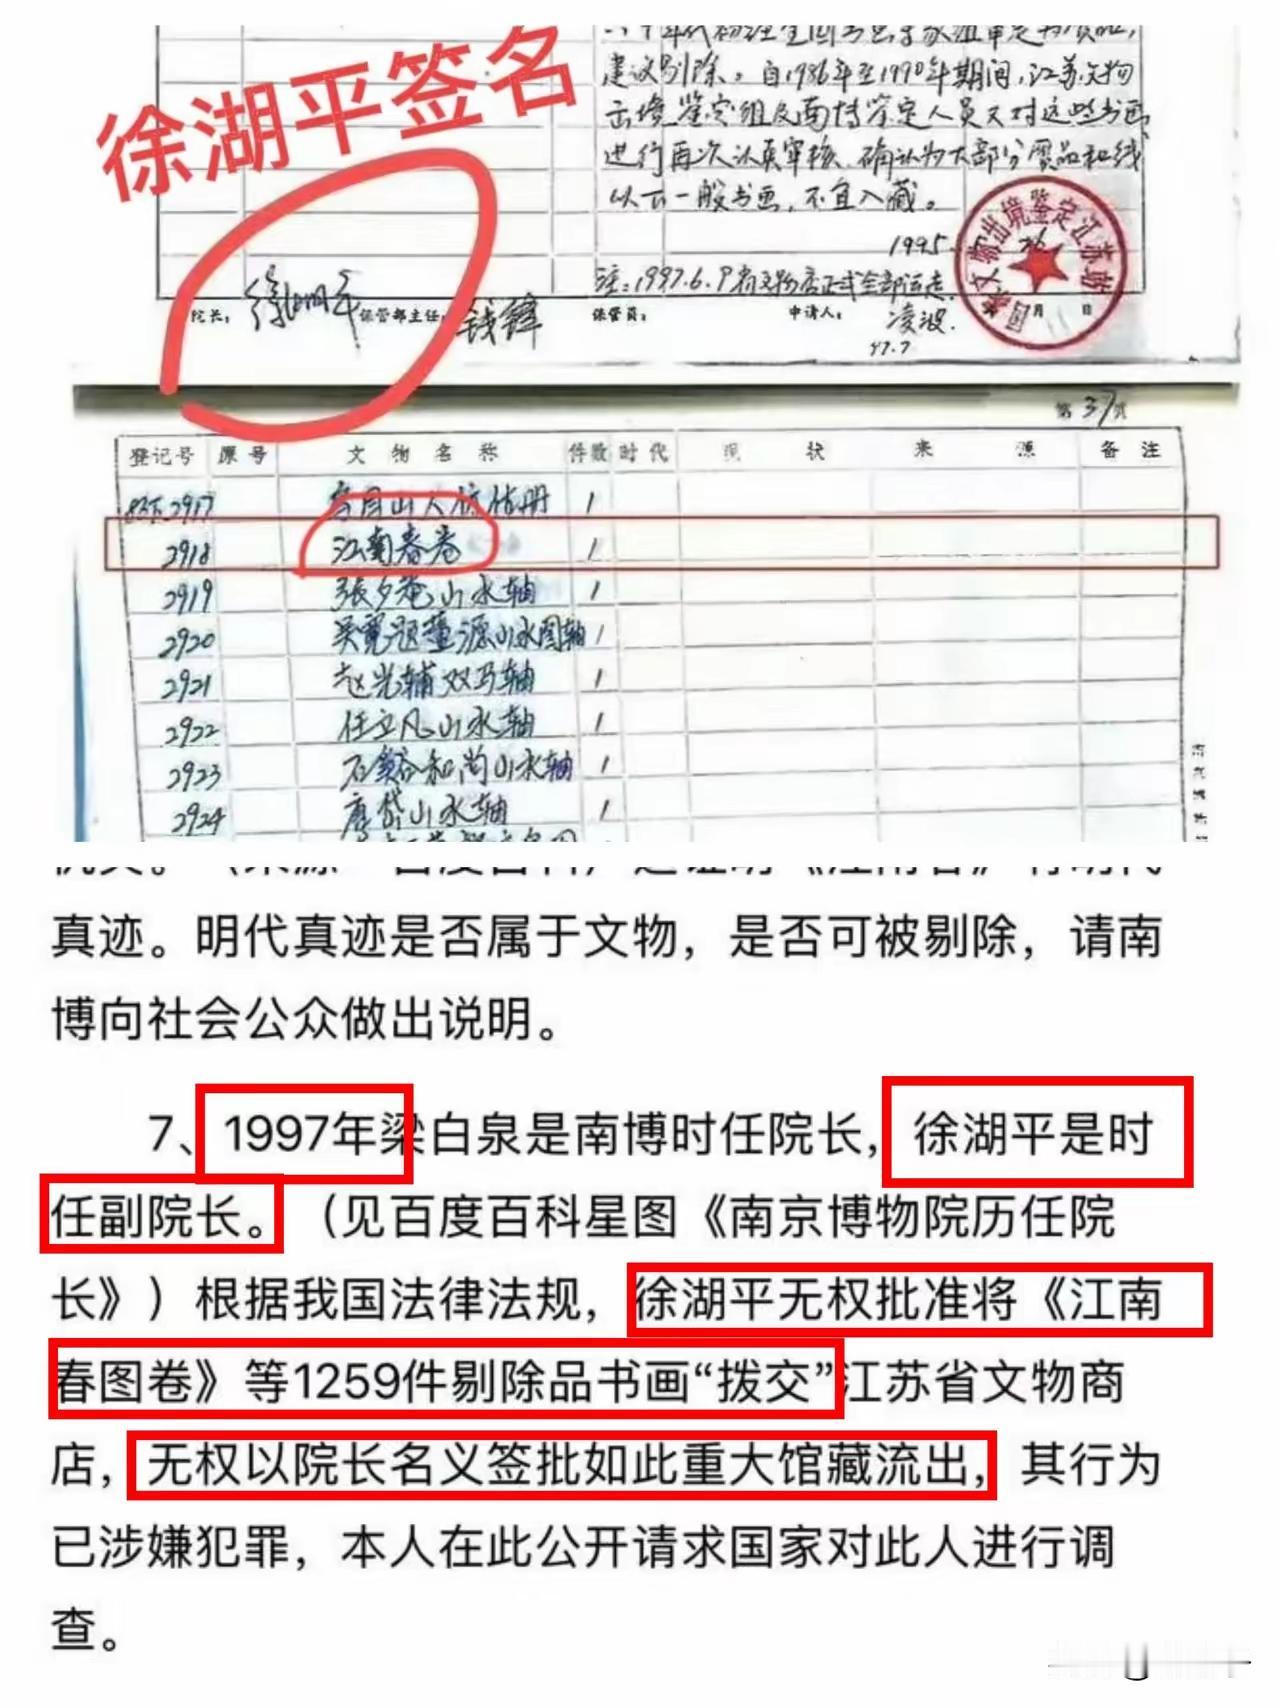 徐湖平签名
建议剔除。自1986年至1990年期间,江苏文物
出境鉴定组及南博鉴定人员又对这些书画
进行再次认真审核,确认为大部分赝品和线
以下一般书画,不宜入藏。
1995.
国家文物出境鉴定江苏站
月 日
注:1997.6.9
院长: 徐湖平 保管部主任: 钱锋 保管员: 申请人: 凌波.
97.7
第37页
登记号 原号 文物名称 件数 时代 现状 来源 备注
2917 1
2918 江南春卷 1
2919 張夕菴山水轴 1
2920 吴寛题董源山水图轴 1
2921 赵光辅双马轴 1
2922 任立凡山水轴 1
2923 石溪和尚山水轴 1
2924 唐岱山水轴 1
真迹。明代真迹是否属于文物，是否可被剔除，请南
博向社会公众做出说明。
7、1997年梁白泉是南博时任院长，徐湖平是时
任副院长。（见百度百科星图《南京博物院历任院
长》）根据我国法律法规，徐湖平无权批准将《江南
春图卷》等1259件剔除品书画“拨交”江苏省文物商
店，无权以院长名义签批如此重大馆藏流出，其行为
已涉嫌犯罪，本人在此公开请求国家对此人进行调
查。